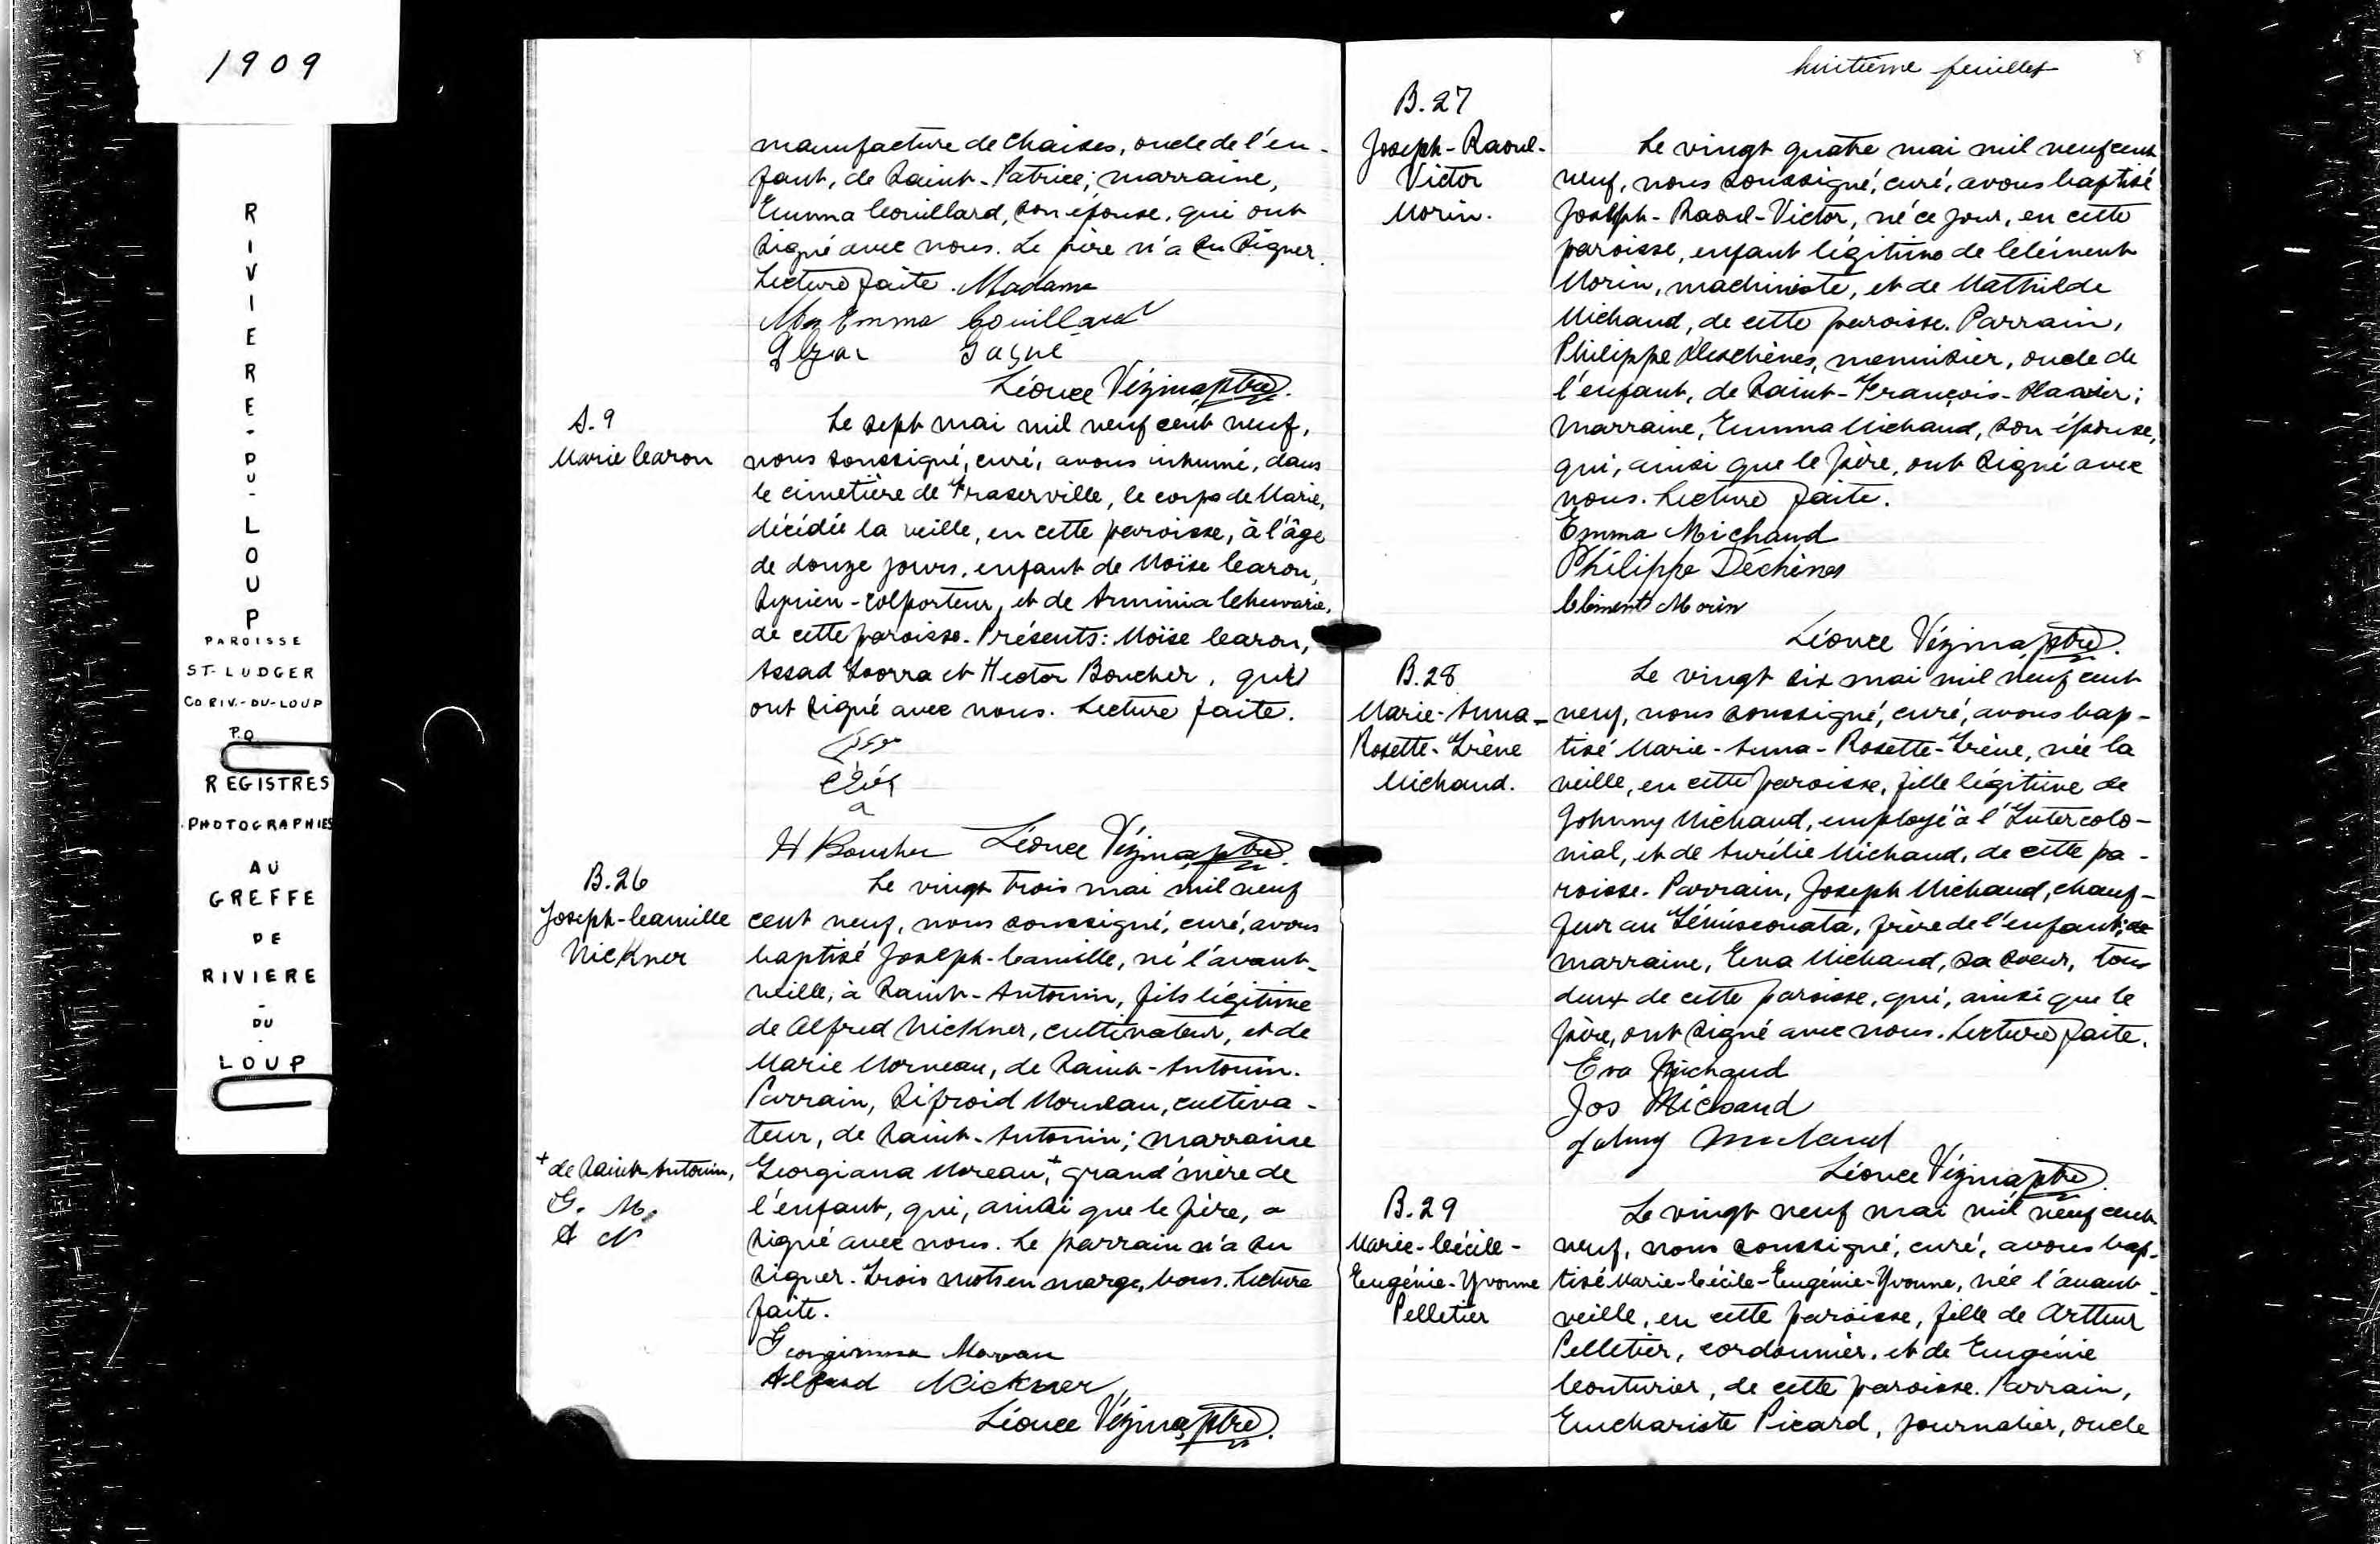 1909
RIVIERE-DU-LOUP
PAROISSE
ST-LUDGER
CO RIV.-DU-LOUP
P.Q.
REGISTRES
PHOTOGRAPHIES
AU
GREFFE
DE
RIVIERE
-
DU
-
LOUP
manufacture de chaises, oncle de l'en-
fant, de Saint-Patrice; marraine,
Emma Couillard, son épouse, qui ont
signé avec nous. Le père n'a su signer.
Lecture faite. Madame
Emma Couillard
Gagné
Léonce Vézina, ptre.
S.9
Marie Caron
Le sept mai mil neuf cent neuf,
nous soussigné, curé, avons inhumé, dans
le cimetière de Fraserville, le corps de Marie,
décédée la veille, en cette paroisse, à l'âge
de douze jours, enfant de Moïse Caron,
Syrien-colporteur, et de
de cette paroisse. Présents: Moïse Caron,
Assad et Hector Boucher, qui
ont signé avec nous. Lecture faite.
H Boucher Léonce Vézina, ptre.
B.26
Joseph-Camille
Nickner
Le vingt trois mai mil neuf
cent neuf, nous soussigné, curé, avons
baptisé Joseph-Camille, né l'avant-
veille, à Saint-Antonin, fils légitime
de Alfred Nickner, cultivateur, et de
Marie Morneau, de Saint-Antonin.
Parrain, Sifroid Morneau, cultiva-
teur, de Saint-Antonin; marraine
+ de Saint Antonin,
G. M.
A N
Georgiana Moreau,+ grand'mère de
l'enfant, qui, ainsi que le père, a
signé avec nous. Le parrain n'a su
signer. Trois mots en marge, bons. Lecture
faite.
Alfred Nickner
Léonce Vézina, ptre.
huitième feuillet
8
B.27
Joseph-Raoul-
Victor
Morin.
Le vingt quatre mai mil neuf cent
neuf, nous soussigné, curé, avons baptisé
Joseph-Raoul-Victor, né ce jour, en cette
paroisse, enfant légitime de Clément
Morin, machiniste, et de Mathilde
Michaud, de cette paroisse. Parrain,
Philippe Deschènes, menuisier, oncle de
l'enfant, de Saint-François-Xavier;
marraine, Emma Michaud, son épouse,
qui, ainsi que le père, ont signé avec
nous. Lecture faite.
Emma Michaud
Philippe Déchènes
Clément Morin
Léonce Vézina, ptre.
B.28
Marie-Anna-
Rosette-Irène
Michaud.
Le vingt six mai mil neuf cent
neuf, nous soussigné, curé, avons bap-
tisé Marie-Anna-Rosette-Irène, née la
veille, en cette paroisse, fille légitime de
Johnny Michaud, employé à l'Intercolo-
nial, et de Aurélie Michaud, de cette pa-
roisse. Parrain, Joseph Michaud, chauf-
feur au Témiscouata, frère de l'enfant; de
marraine, Eva Michaud, sa soeur, tous
deux de cette paroisse, qui, ainsi que le
père, ont signé avec nous. Lecture faite.
Eva Michaud
Jos Michaud
Johnny Michaud
Léonce Vézina, ptre.
B.29
Marie-Cécile-
Eugénie-Yvonne
Pelletier
Le vingt neuf mai mil neuf cent
neuf, nous soussigné, curé, avons bap-
tisé Marie-Cécile-Eugénie-Yvonne, née l'avant-
veille, en cette paroisse, fille de Arthur
Pelletier, cordonnier, et de Eugénie
Couturier, de cette paroisse. Parrain,
Euchariste Picard, journalier, oncle